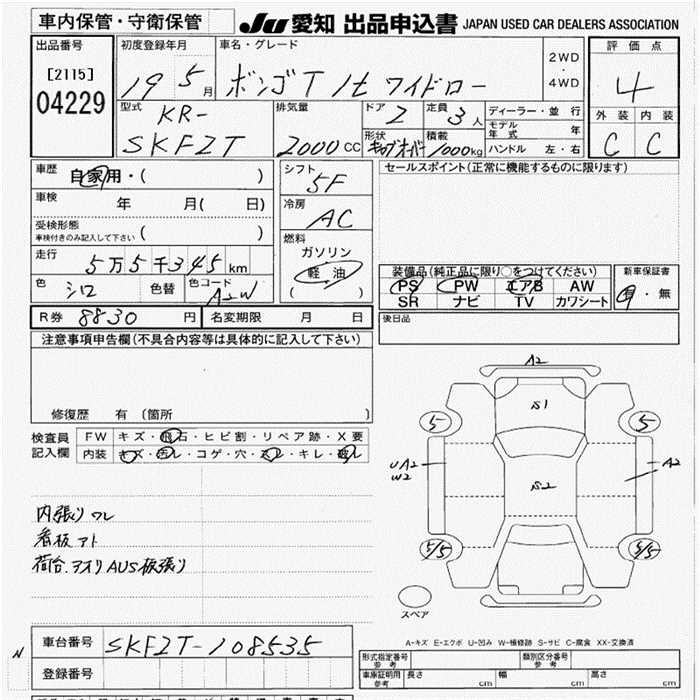 車内保管・守衛保管
JU 愛知 出品申込書 JAPAN USED CAR DEALERS ASSOCIATION
出品番号
[2115]
04229
初度登録年月
19 5月
車名・グレード
ボンゴT 1t ワイドロー
2WD
・
4WD
評価点
4
外装 内装
C C
型式
KR-
SKF2T
排気量
2000 CC
ドア 2
定員 3人
形状 キャブオーバー
積載 1000kg
ディーラー・並行
モデル年式 年
ハンドル 左・右
車歴
自家用・( )
車検
年 月( 日)
受検形態
車検付きのみ記入して下さい ( )
走行
5万5千345km
色 シロ 色替 色コード A2W
シフト
5F
冷房
AC
燃料
ガソリン
軽油
( )
セールスポイント(正常に機能するものに限ります)
装備品(純正品に限り○をつけてください)
PS PW エアB AW
SR ナビ TV カワシート
新車保証書
有・無
R券 8830 円 名変期限 月 日
後日品
注意事項申告欄(不具合内容等は具体的に記入して下さい)
修復歴 有 〔箇所 〕
検査員
記入欄
FW キズ・飛石・ヒビ割・リペア跡・X要
内装 キズ・汚レ・コゲ・穴・スレ・キレ・破レ
内張り ワレ
看板 アト
荷台.アオリ AUS板張り
A2
S1
5 5
UA2
W2
A2
S2
5/5 5/5
スペア
A-キズ E-エクボ U-凹み W-補修跡 S-サビ C-腐食 XX-交換済
N
車台番号 SKF2T-108535
登録番号
形式指定番号
参考
類別区分番号
参考
車庫証明用
参考
長さ cm 幅 cm 高さ cm